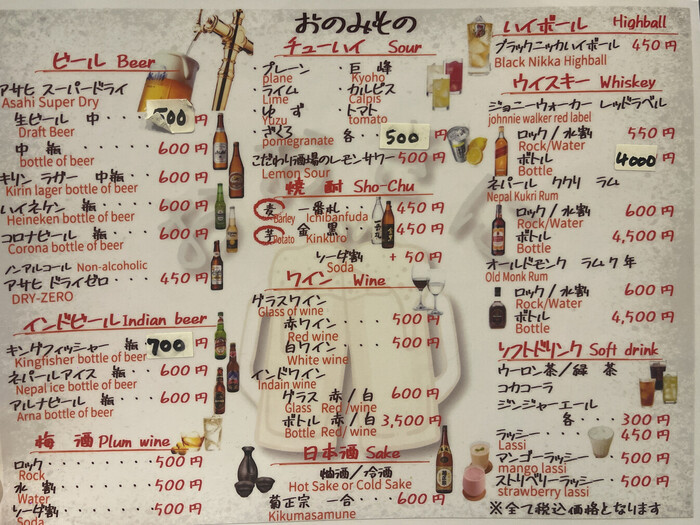 おのみもの
ビール Beer
アサヒ スーパードライ
Asahi Super Dry
生ビール 中・・・500円
Draft Beer
中 瓶・・・・・・600円
bottle of beer
キリン ラガー 中瓶・・600円
Kirin lager bottle of beer
ハイネケン 瓶・・・600円
Heineken bottle of beer
コロナビール 瓶・・600円
Corona bottle of beer
ノンアルコール Non-alcoholic
アサヒ ドライゼロ・・・450円
DRY-ZERO
インドビール Indian beer
キングフィッシャー 瓶・700円
Kingfisher bottle of beer
ネパールアイス 瓶・・600円
Nepal ice bottle of beer
アルナビール 瓶・・600円
Arna bottle of beer
梅酒 Plum wine
ロック・・・・・・・500円
Rock
水 割・・・・・・・500円
Water
ソーダ割・・・・・・500円
Soda
チューハイ Sour
・プレーン ・巨峰
plane Kyoho
・ライム ・カルピス
Lime Calpis
・ゆず ・トマト
Yuzu tomato
・ざくろ 各・・500円
pomegranate
こだわり酒場のレモンサワー 500円
Lemon Sour
焼酎 Sho-Chu
麦 一番札・・450円
Barley Ichibanfuda
芋 金黒・・450円
Potato Kinkuro
ソーダ割 +50円
Soda
ワイン Wine
グラスワイン
Glass of wine
赤ワイン・・・・500円
Red wine
白ワイン・・・・500円
White wine
インドワイン
Indain wine
グラス 赤/白 600円
Glass Red /wine
ボトル 赤/白 3,500円
Bottle Red /wine
日本酒 Sake
熱酒/冷酒
Hot Sake or Cold Sake
菊正宗 一合・・600円
Kikumasamune
ハイボール Highball
ブラックニッカハイボール 450円
Black Nikka Highball
ウイスキー Whiskey
ジョニーウォーカー レッドラベル
johnnie walker red label
ロック/水割 550円
Rock/Water
ボトル 4000円
Bottle
ネパール ククリ ラム
Nepal Kukri Rum
ロック/水割 600円
Rock/Water
ボトル 4,500円
Bottle
オールドモンク ラム7年
Old Monk Rum
ロック/水割 600円
Rock/Water
ボトル 4,500円
Bottle
ソフトドリンク Soft drink
ウーロン茶/緑 茶
コカコーラ
ジンジャーエール
各・・・300円
ラッシー・・・・450円
Lassi
マンゴーラッシー・・500円
mango lassi
ストリベリーラッシー・500円
strawberry lassi
※全て税込価格となります